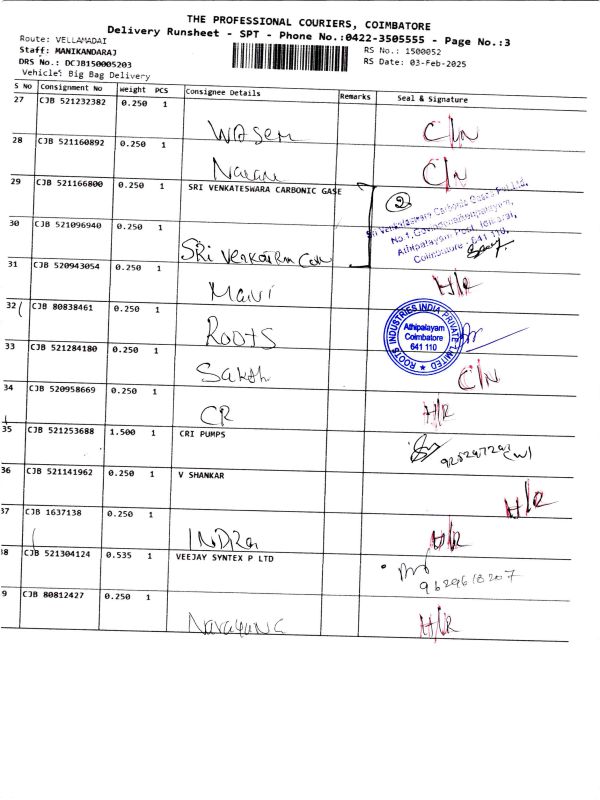 THE PROFESSIONAL COURIERS, COIMBATORE
Delivery Runsheet - SPT - Phone No.:0422-3505555 - Page No.:3
Route: VELLAMADAI
Staff: MANIKANDARAJ
RS No.: 1500052
DRS No.: DCJB150005203
RS Date: 03-Feb-2025
Vehicle: Big Bag Delivery
S NO Consignment No Weight PCS Consignee Details Remarks Seal & Signature
27 CJB 521232382 0.250 1
Wasem C/N
28 CJB 521160892 0.250 1
Naran C/N
29 CJB 521166800 0.250 1 SRI VENKATESWARA CARBONIC GASE
2
Sri Venkateswara Carbonic Gases Pvt Ltd,
No.1, Govindanaickenpalayam,
Athipalayam Post, Idikarai,
Coimbatore - 641 110.
30 CJB 521096940 0.250 1
SRi Venkatra Con
31 CJB 520943054 0.250 1
Mani H/R
32 CJB 80838461 0.250 1
ROOTS
ROOTS INDUSTRIES INDIA PRIVATE LIMITED
Athipalayam
Coimbatore
641 110
33 CJB 521284180 0.250 1
Sakth C/N
34 CJB 520958669 0.250 1
CR H/R
35 CJB 521253688 1.500 1 CRI PUMPS
(W)
36 CJB 521141962 0.250 1 V SHANKAR
H/R
37 CJB 1637138 0.250 1
INDRa H/R
38 CJB 521304124 0.535 1 VEEJAY SYNTEX P LTD
9629618207
9 CJB 80812427 0.250 1
Narayana H/R